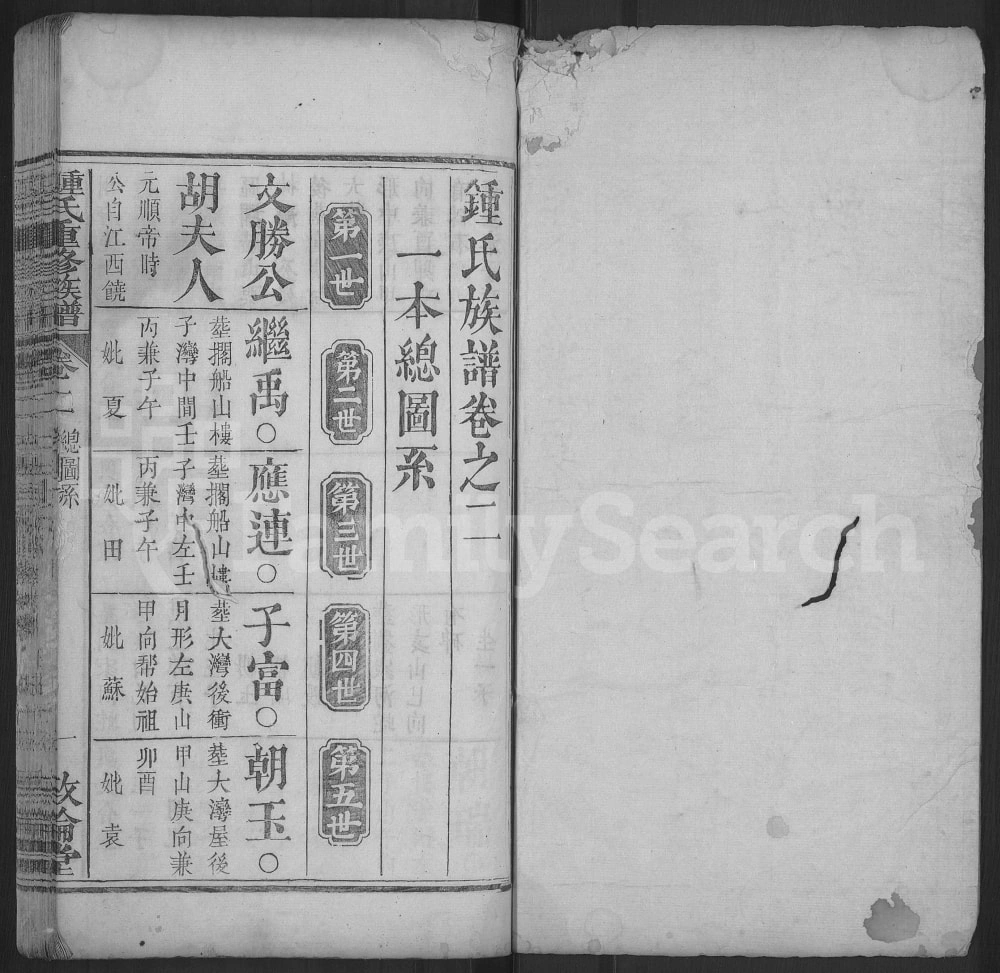 鍾氏族譜卷之二
一本總圖系
第一世
第二世
第三世
第四世
第五世
文勝公
胡夫人
元順帝時
公自江西饒
繼禹○
葬擱船山樓
子灣中間壬
丙兼子午
妣夏
應連○
葬擱船山樓
子灣中左壬
丙兼子午
妣田
子富○
葬大灣後衝
月形左庚山
甲向帮始祖
妣蘇
朝玉○
葬大灣屋後
甲山庚向兼
卯酉
妣袁
鍾氏重修族譜
卷之二
總圖系
一
敦倫堂
FamilySearch